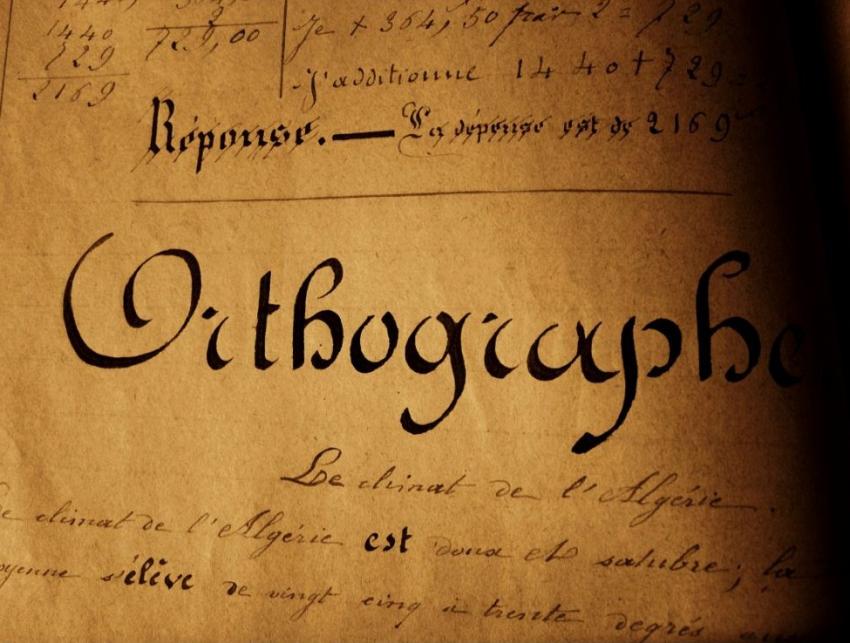 1440
729
2169
729,00
Je × 364,50 par 2 = 729
J'additionne 1440 + 729 =
Réponse. — La dépense est de 2169
Orthographe
Le climat de l'Algérie.
climat de l'Algérie est doux et salubre; la
s'élève de vingt cinq à trente degrés